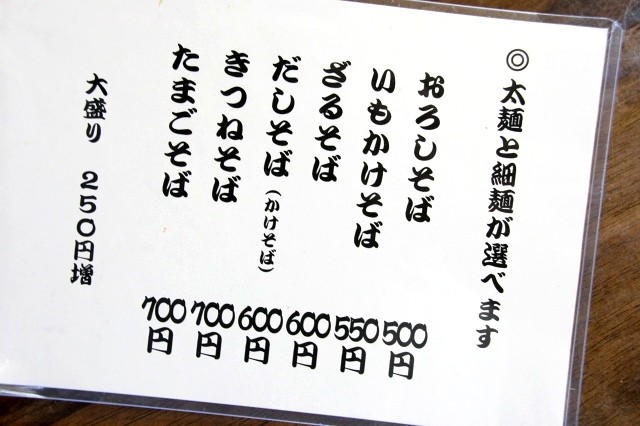 ◎太麺と細麺が選べます
おろしそば 500円
いもかけそば 550円
ざるそば 600円
だしそば(かけそば) 600円
きつねそば 700円
たまごそば 700円
大盛り 250円増